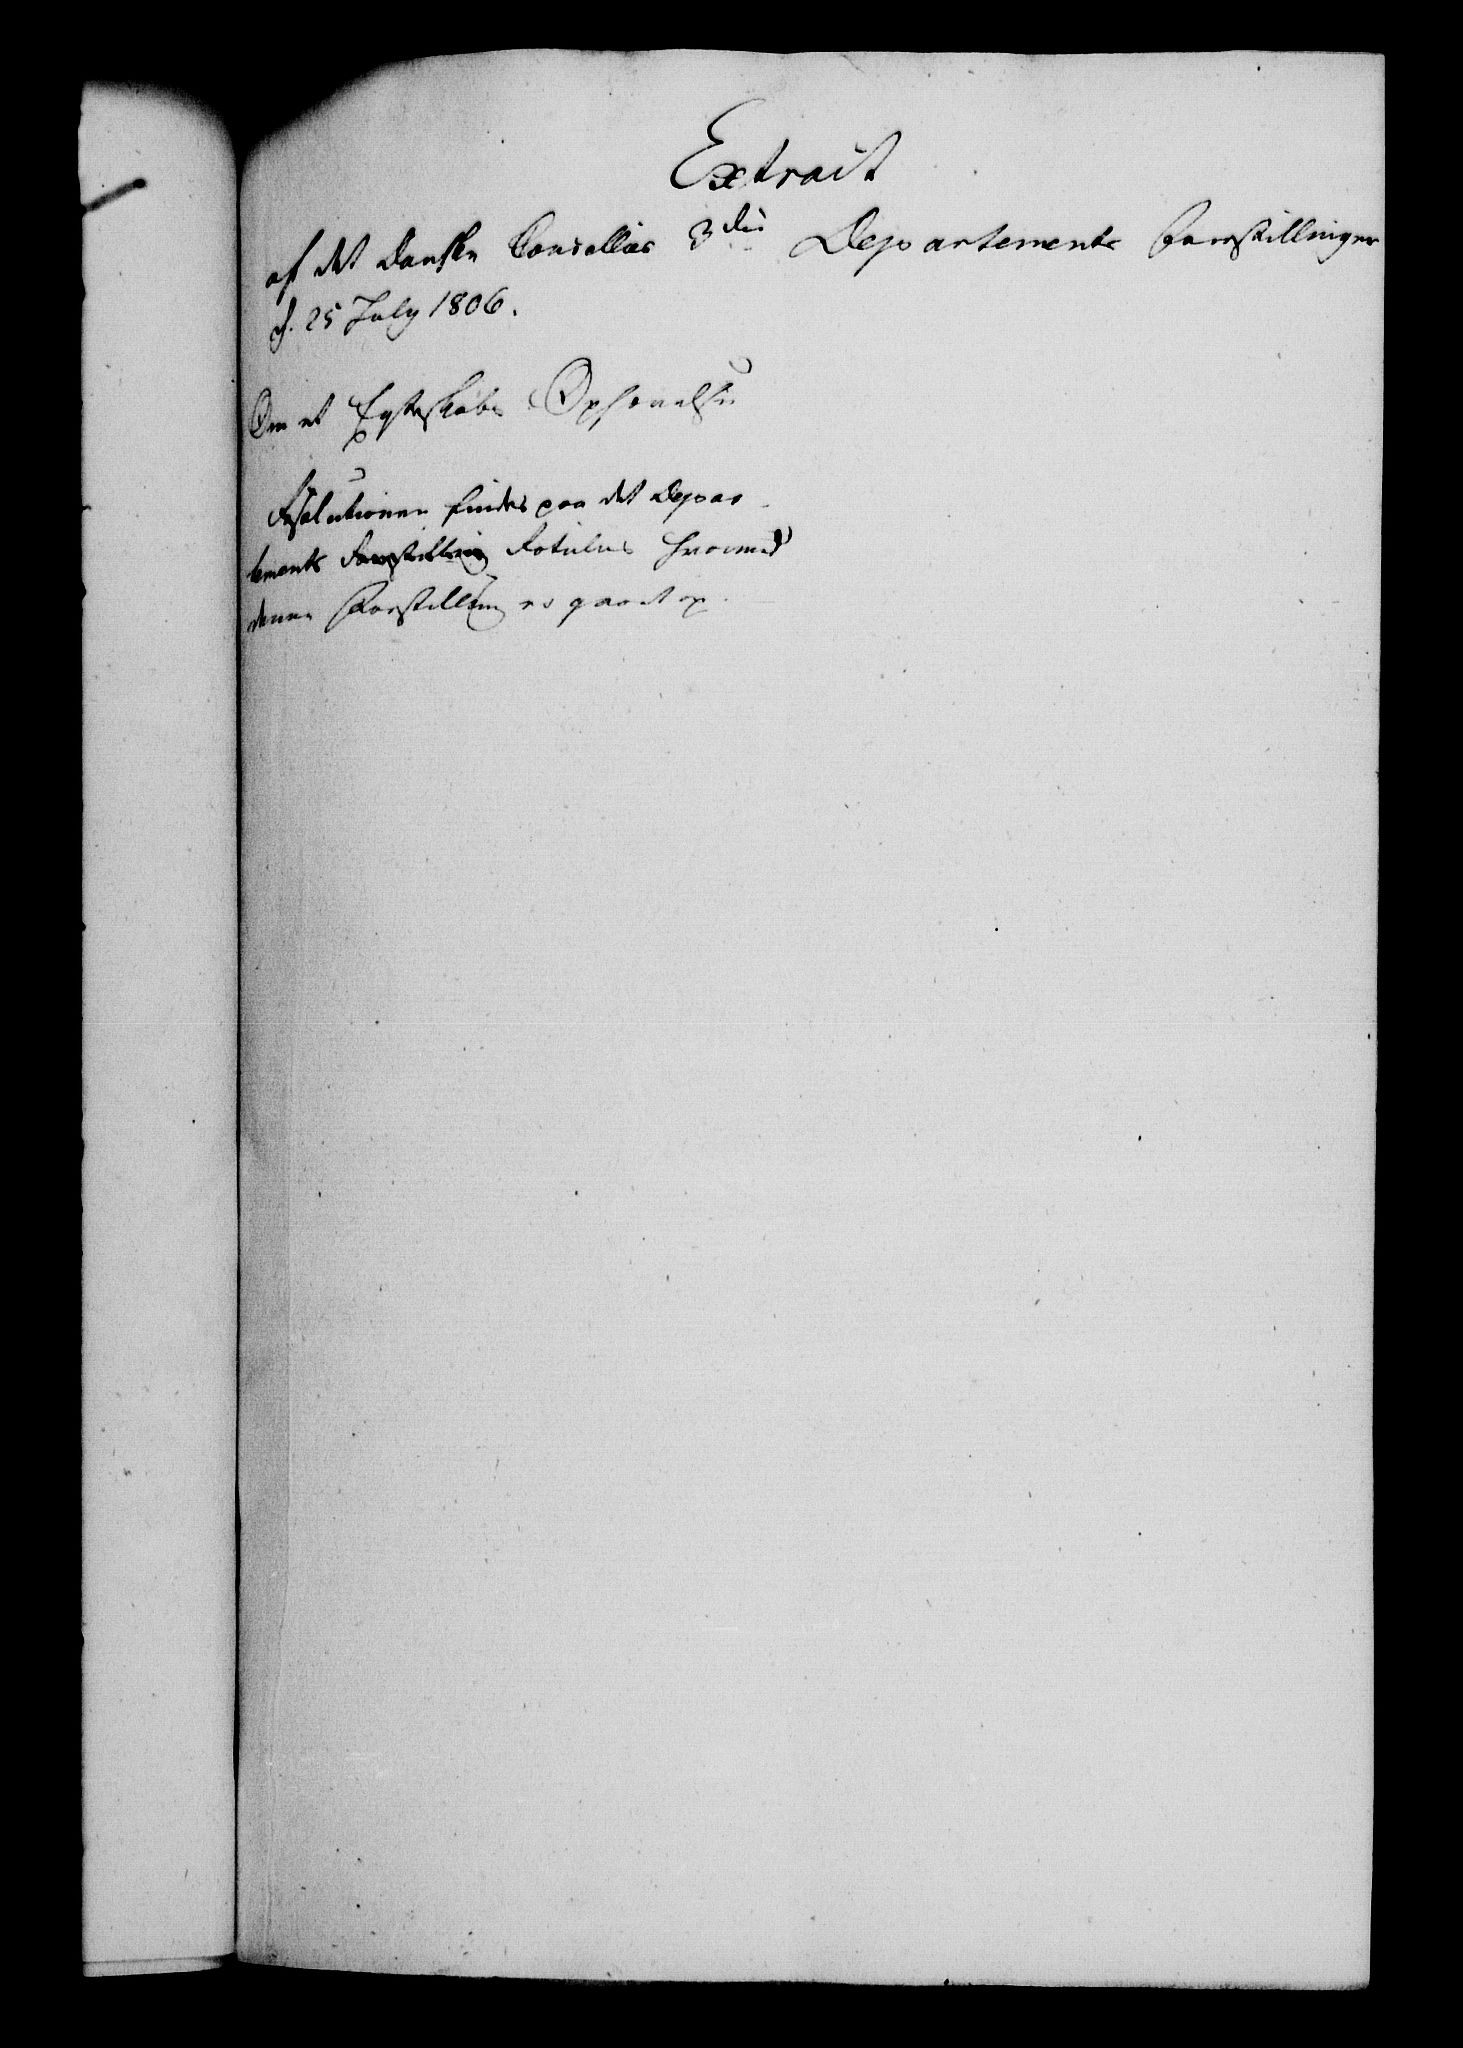 Extrait
af det danske Cancellies 3die Departements Forestillinger
d. 25 July 1806.
Om et Egteskabs Ophævelse
Resolutionen findes paa det Depar-
tements Forestilling Rotulus hvormed
denne Forestilling er gaaet op.